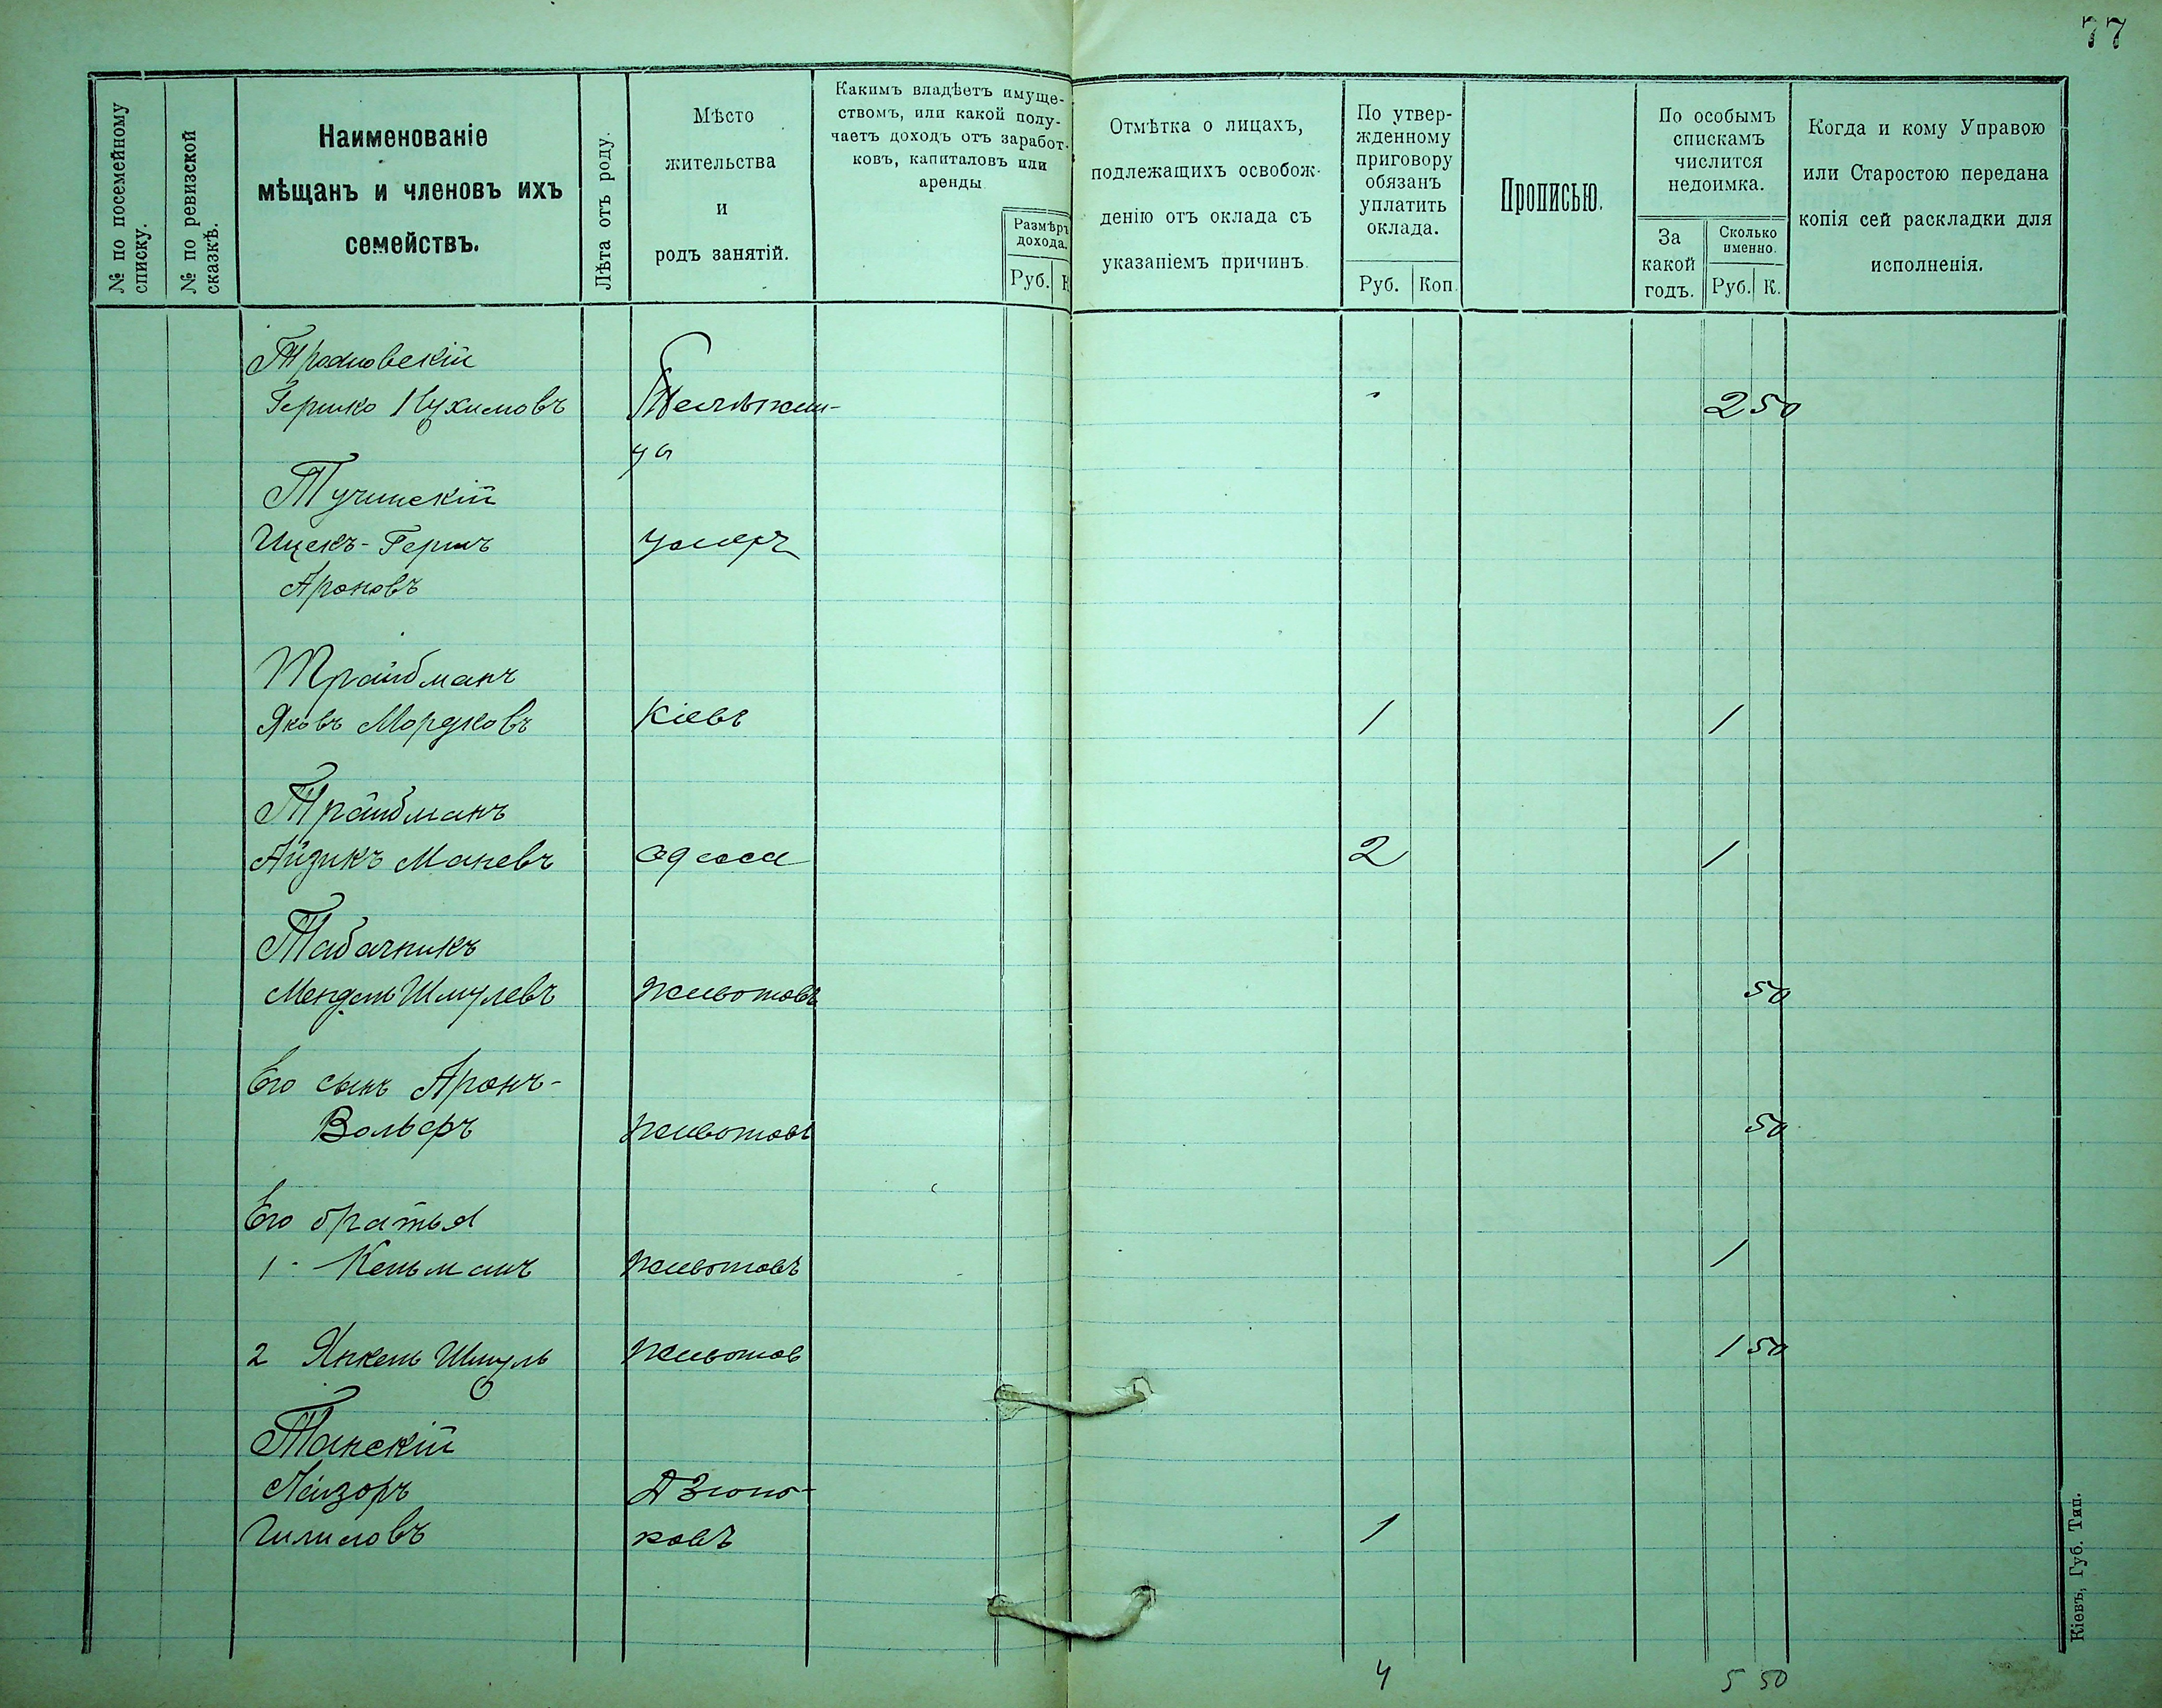 77
№ по посемейному списку.
№ по ревизской сказкѣ.
Наименованіе
мѣщанъ и членовъ ихъ
семействъ.
Лѣта отъ роду.
Мѣсто
жительства
и
родъ занятій.
Какимъ владѣетъ имуще-
ствомъ, или какой полу-
чаетъ доходъ отъ заработ-
ковъ, капиталовъ или
аренды
Размѣръ
дохода.
Руб. К
Отмѣтка о лицахъ,
подлежащихъ освобож-
денію отъ оклада съ
указаніемъ причинъ.
По утвер-
жденному
приговору
обязанъ
уплатить
оклада.
Руб. Коп.
Прописью.
По особымъ
спискамъ
числится
недоимка.
За
какой
годъ.
Сколько
именно.
Руб. К.
Когда и кому Управою
или Старостою передана
копія сей раскладки для
исполненія.
Трояновскій
Гершко Нухимовъ 2 50
Тучинскій
Ицекъ-Гершъ умеръ
Ароновъ
Трайбманъ
Яковъ Мордковъ Кіевъ 1 1
Трайбманъ
Айзикъ Маневъ Одесса 2 1
Табачникъ
Мендель Шмулевъ Животовъ 50
Его сынъ Аронъ-
Вольфъ Животовъ 50
Его братья
1 Кельманъ Животовъ 1
2 Янкель Шмуль Животов 1 50
Танскій
Лейзоръ Дзюнь-
ковъ 1
4 5 50
Кіевъ, Губ. Тип.